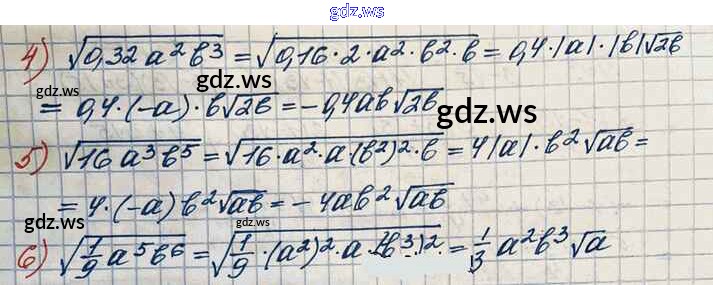 gdz.ws
4) √(0,32 a² b³) = √(0,16 · 2 · a² · b² · b) = 0,4 · |a| · |b| √2b
gdz.ws gdz.ws
= 0,4 · (-a) · b √2b = - 0,4ab √2b
gdz.ws
5) √(16 a³ b⁵) = √(16 · a² · a (b²)² · b) = 4|a| · b² √ab =
= 4 · (-a) b² √ab = - 4ab² √ab
gdz.ws gdz.ws
6) √(1/9 a⁵ b⁶) = √(1/9 · (a²)² · a · (b³)²) = 1/3 a² b³ √a
gdz.ws